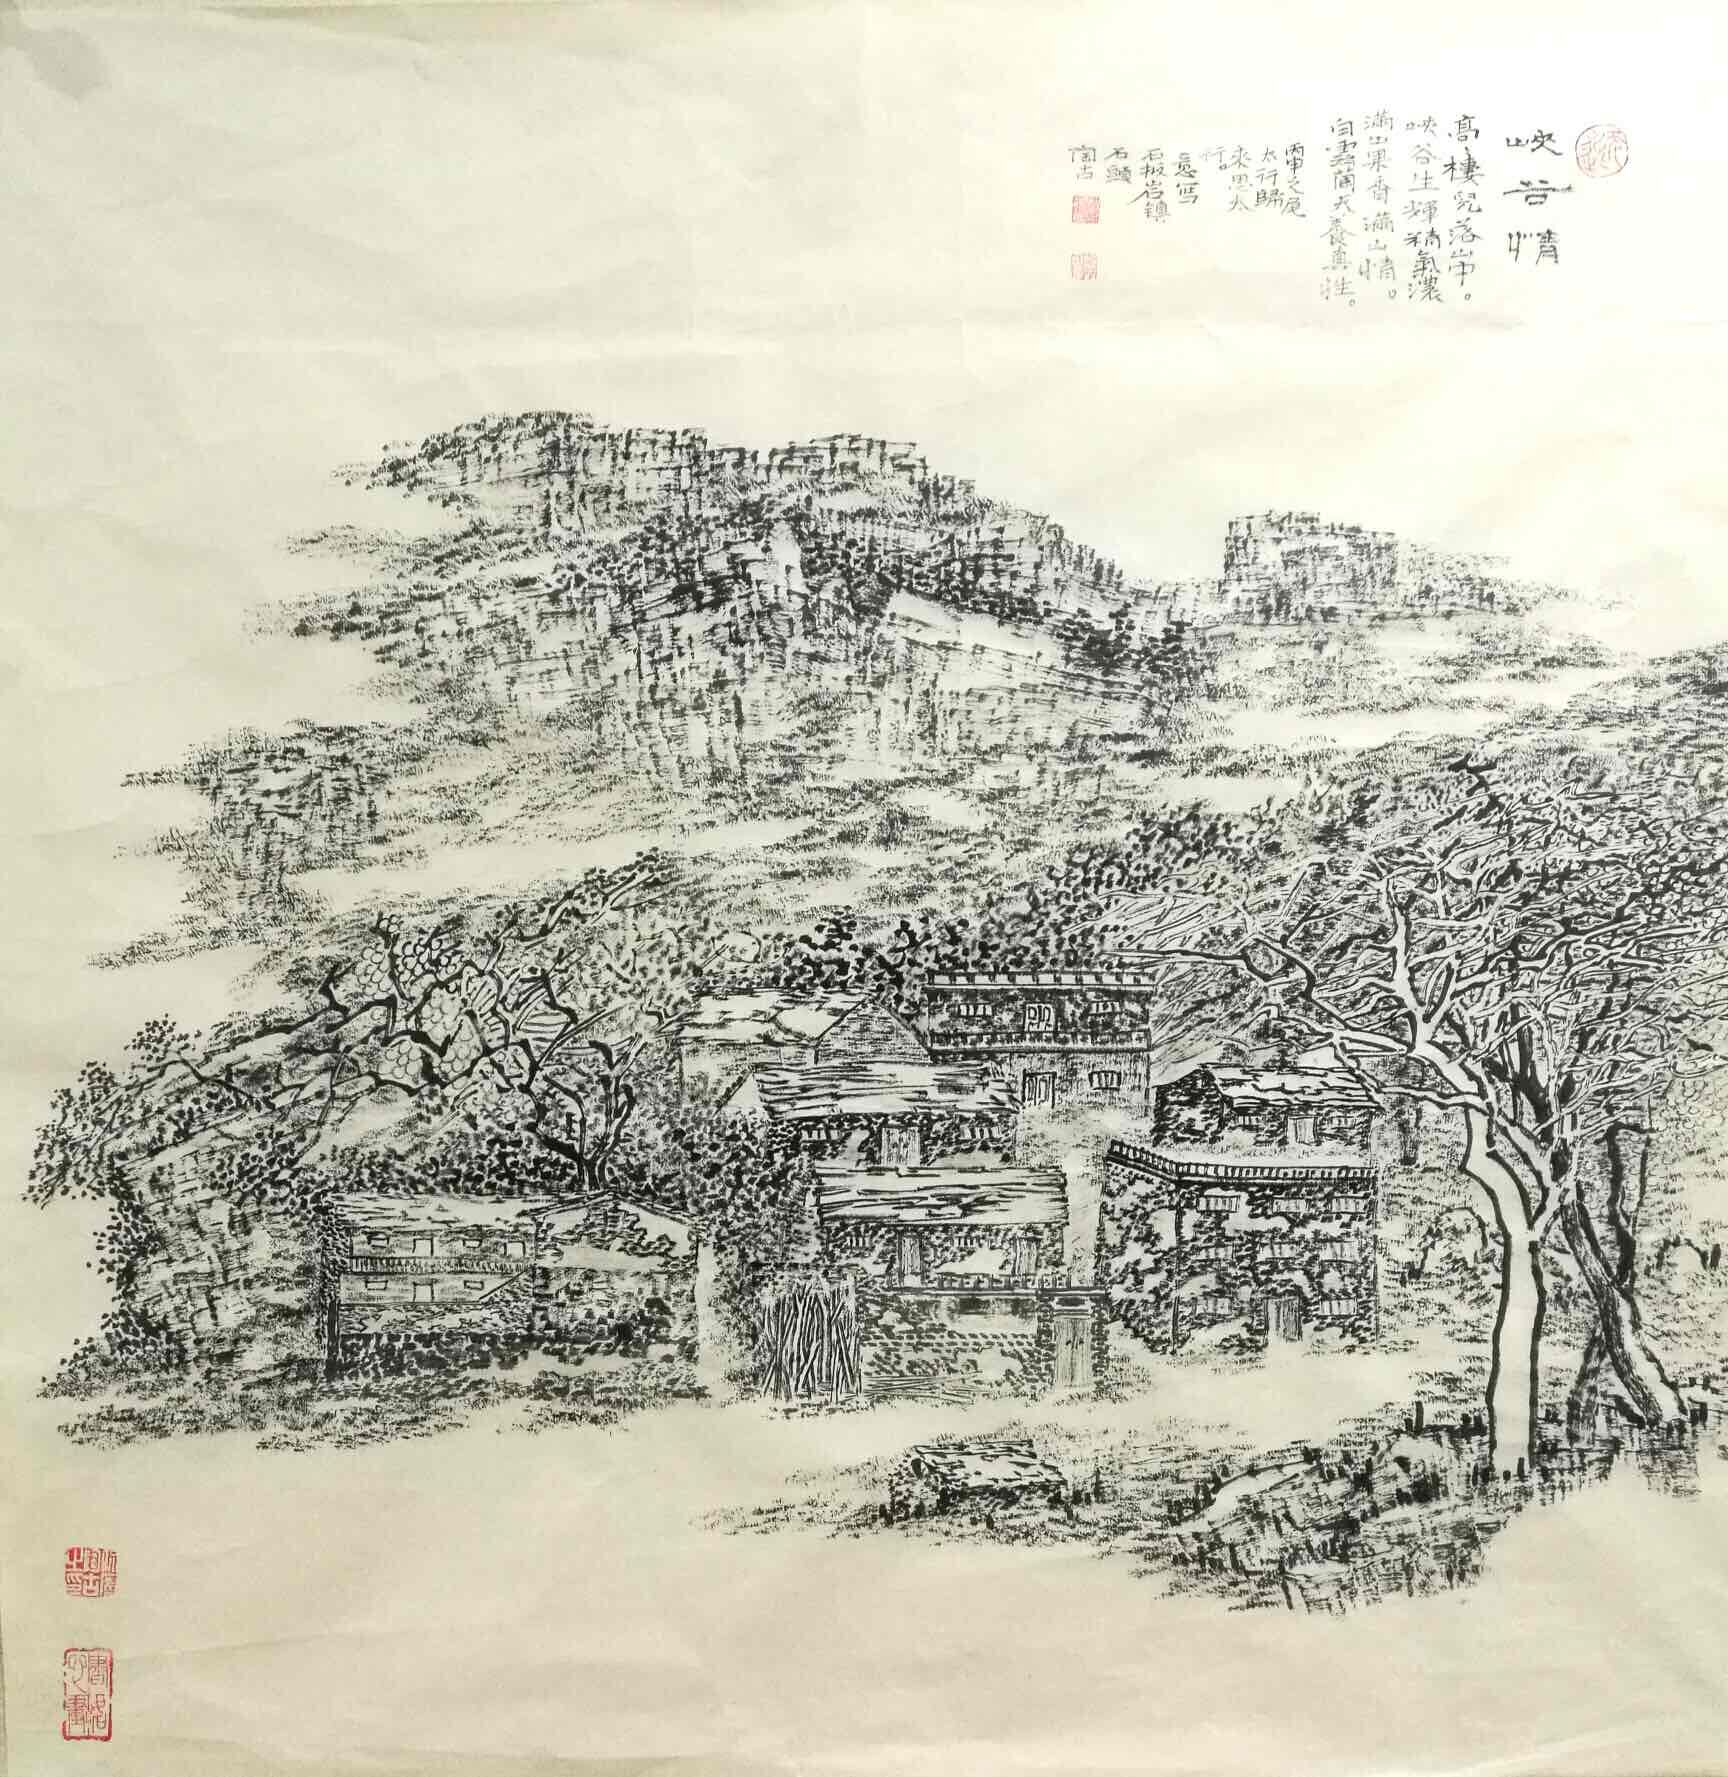 峡谷情
高楼儿落山中。
峡谷生輝精氣濃
滿山果香滿山情。
白雲蘭天養真性。
丙申之尾
太行歸
来思太
行。
意写
石板岩鎮
石頭
陶古